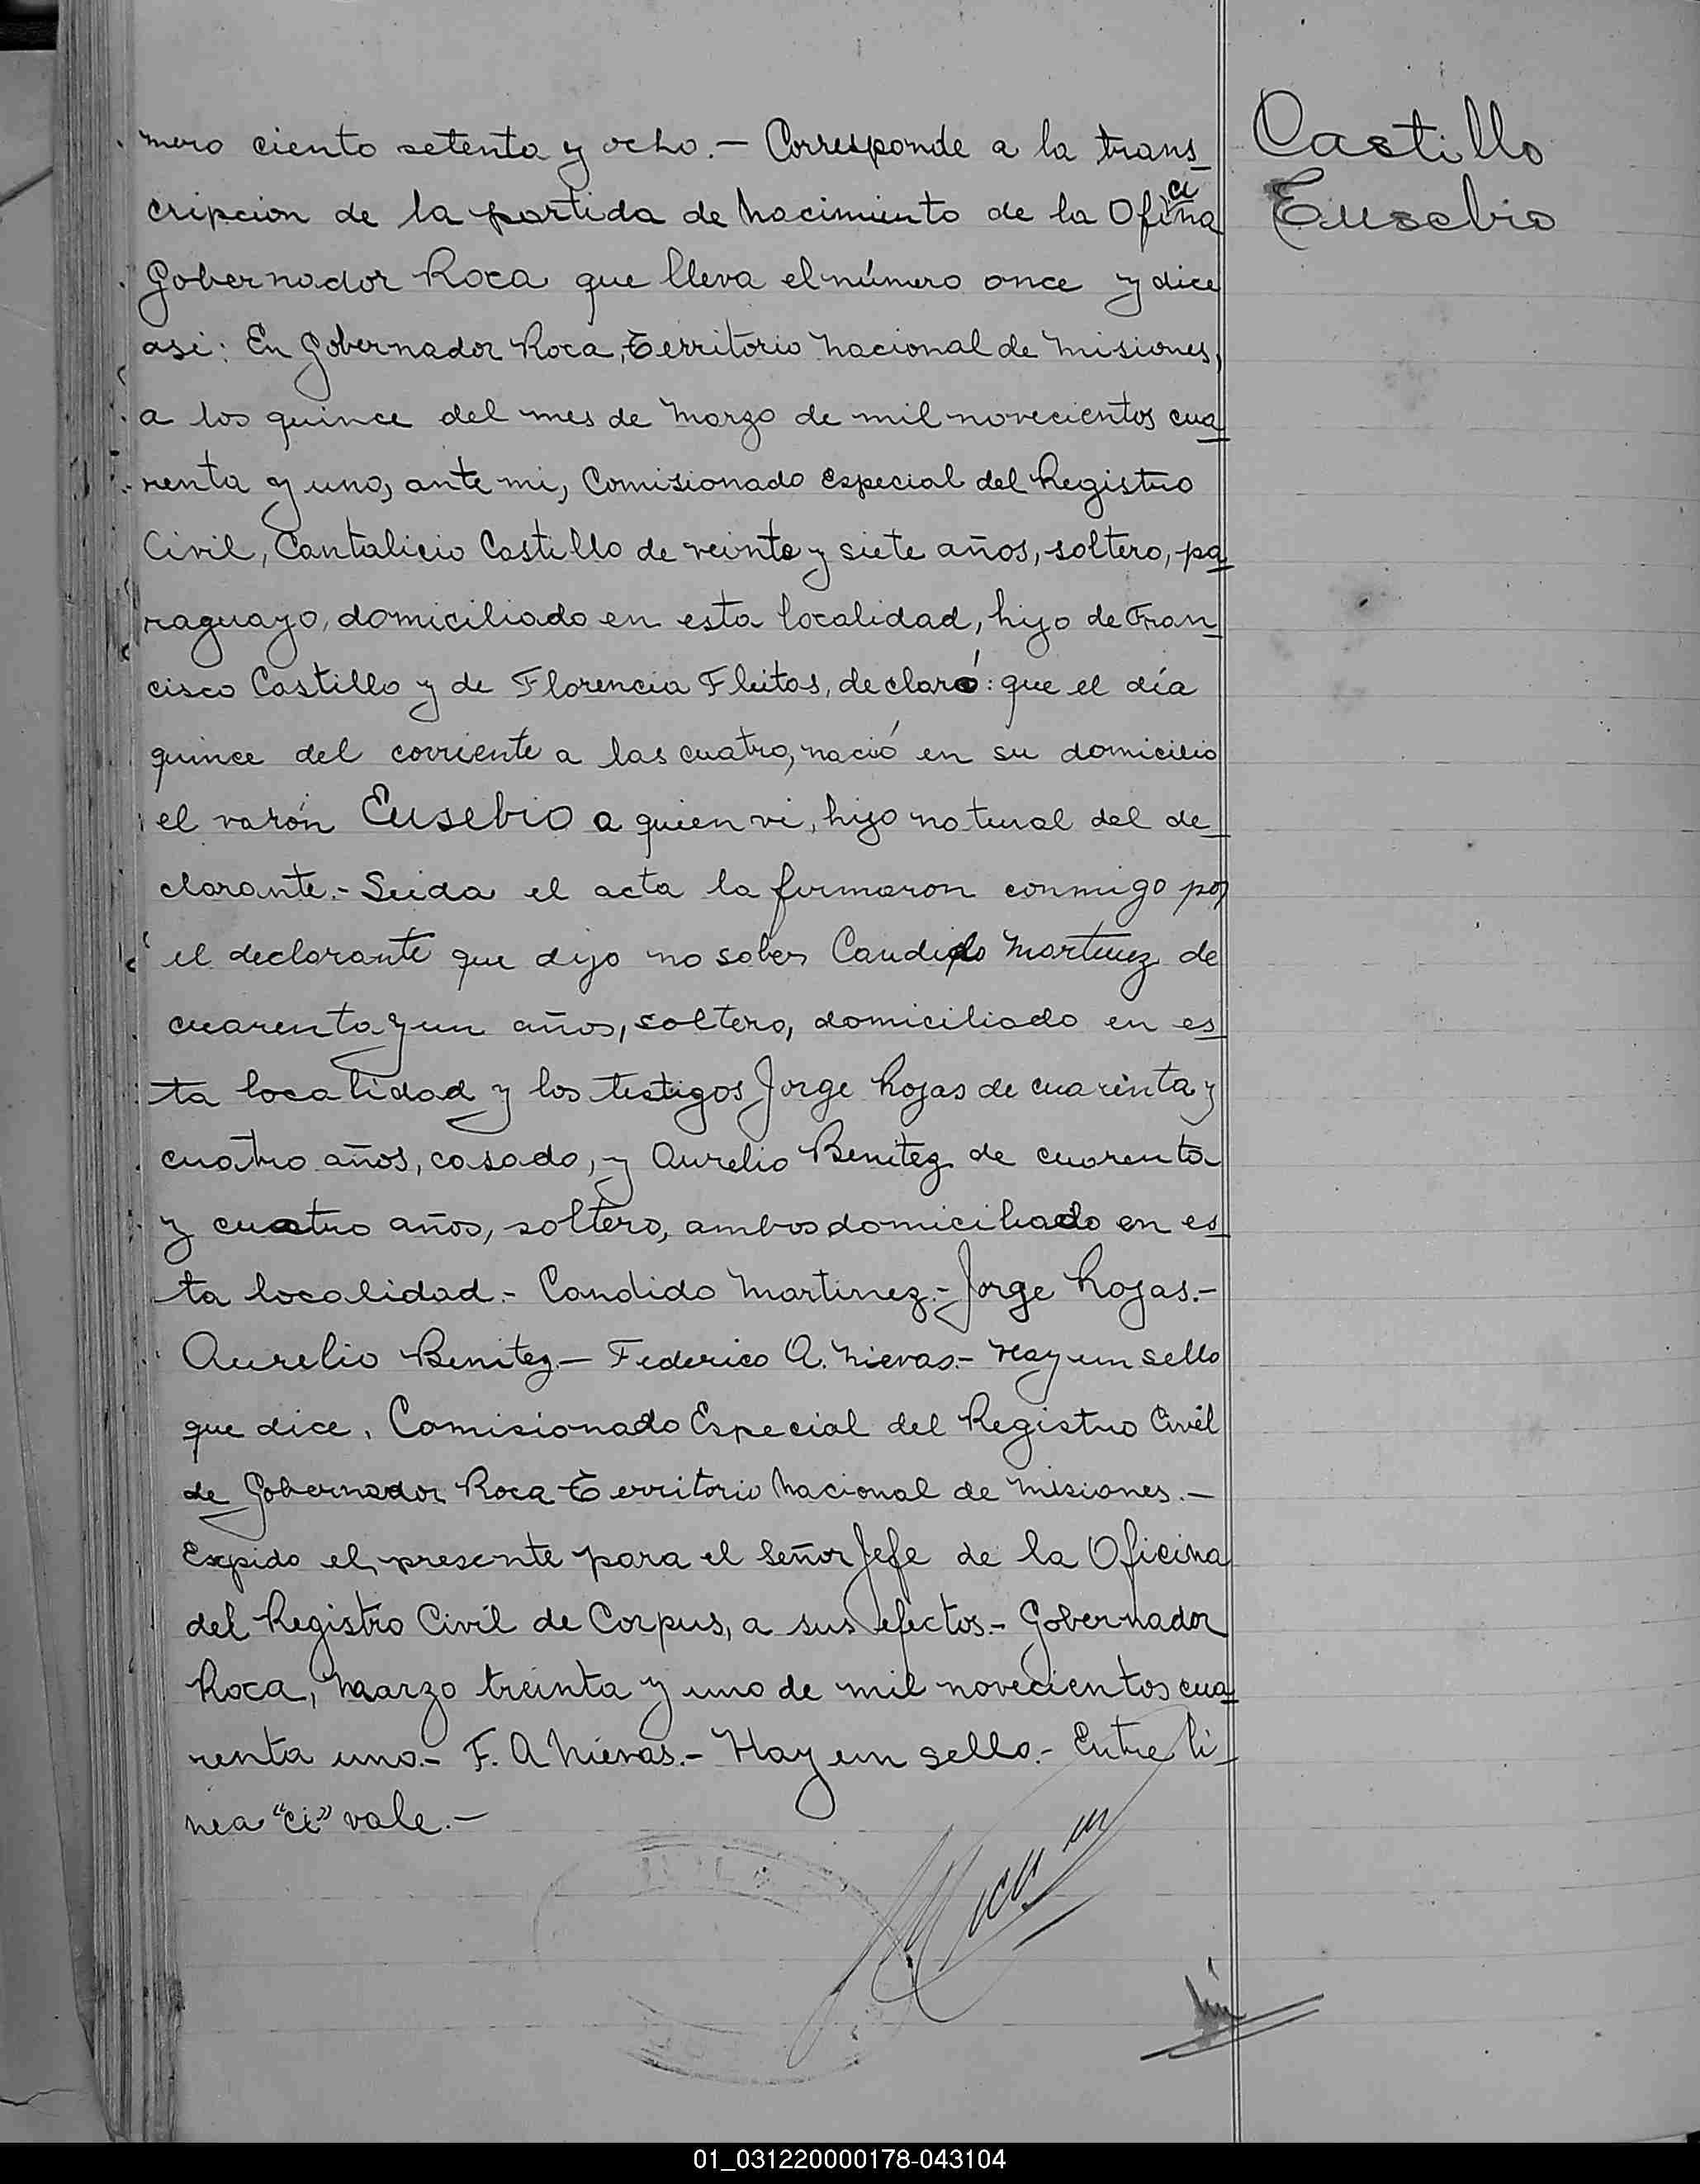 mero ciento setenta y ocho.— Corresponde a la trans-
cripcion de la partida de Nacimiento de la Ofi ci na
Gobernador Roca que lleva el número once y dice
asi: En Gobernador Roca, Territorio Nacional de Misiones,
a los quince del mes de Marzo de mil novecientos cua-
renta y uno, ante mi, Comisionado Especial del Registro
Civil, Cantalicio Castillo de veinte y siete años, soltero, pa-
raguayo, domiciliado en esta localidad, hijo de Fran-
cisco Castillo y de Florencia Fleitas, declaró: que el día
quince del corriente a las cuatro, nació en su domicilio
el varón Eusebio a quien vi, hijo natural del de-
clarante.- Leida el acta la firmaron conmigo por
el declarante que dijo no saber Candido Martinez de
cuarenta y un años, soltero, domiciliado en es-
ta localidad y los testigos Jorge Rojas de cuarenta y
cuatro años, casado, y Aurelio Benitez de cuarenta
y cuatro años, soltero, ambos domiciliado en es-
ta localidad.- Candido Martinez.- Jorge Rojas.-
Aurelio Benitez.— Federico A. Nievas.- Hay un sello
que dice. Comisionado Especial del Registro Civil
de Gobernador Roca Territorio Nacional de Misiones.—
Expido el presente para el Señor Jefe de la Oficina
del Registro Civil de Corpus, a sus efectos.- Gobernador
Roca, Marzo treinta y uno de mil novecientos cua-
renta uno.- F. A Nievas.- Hay un sello.- Entre li-
nea "ci" vale.—
Castillo
Eusebio
01_031220000178-043104